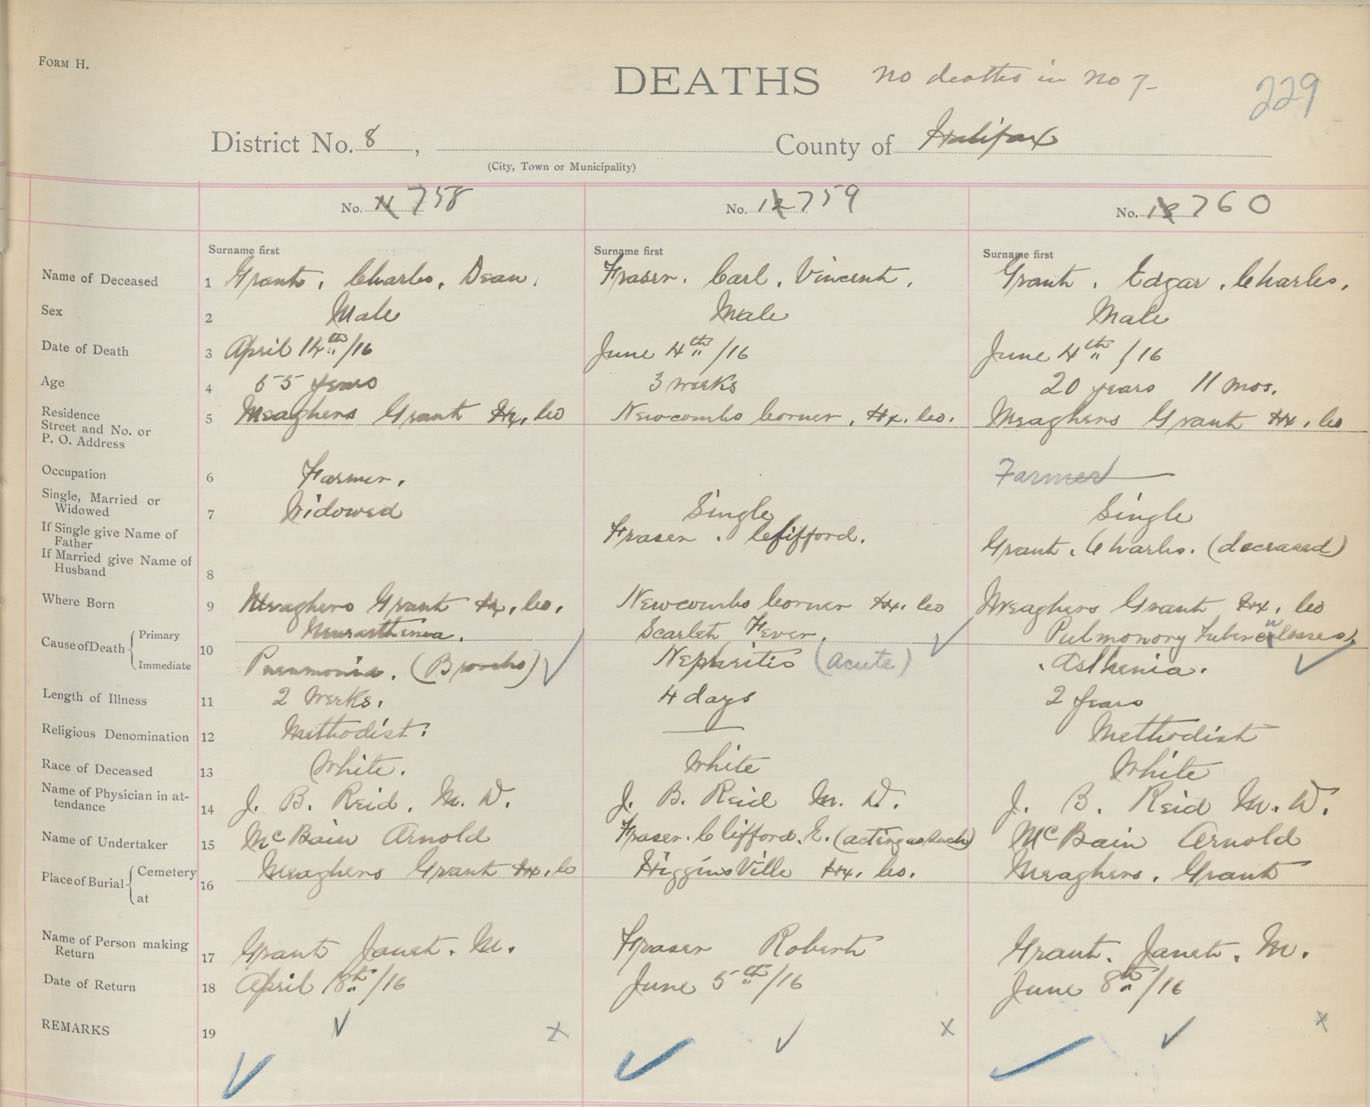 FORM H.
DEATHS no deaths in no 7
229
District No. 8 , County of Halifax
(City, Town or Municipality)
No. 11 758 No. 12 759 No. 13 760
Surname first Surname first Surname first
Name of Deceased 1 Grant, Charles, Dean. Fraser. Carl, Vincent. Grant, Edgar, Charles.
Sex 2 Male Male Male
Date of Death 3 April 14th/16 June 4th/16 June 4th/16
Age 4 55 years 3 weeks 20 years 11 mos.
Residence
Street and No. or
P. O. Address 5 Meaghers Grant Hx. Co Newcombs Corner, Hx. Co. Meaghers Grant Hx. Co
Occupation 6 Farmer. Farmer
Single, Married or
Widowed 7 Widowed Single Single
If Single give Name of
Father Fraser. Clifford. Grant. Charles. (deceased)
If Married give Name of
Husband 8
Where Born 9 Meaghers Grant Hx. Co. Newcombs Corner Hx. Co Meaghers Grant Hx. Co
Cause of Death Primary 10 Neurasthenia. Scarlet Fever. Pulmonory Tuberculoses
Immediate Pneumonia. (Broncho) Nephrites (acute) Asthenia.
Length of Illness 11 2 weeks. 4 days 2 years
Religious Denomination 12 Methodist. — Methodist
Race of Deceased 13 White. White White
Name of Physician in at-
tendance 14 J. B. Reid. M. D. J. B. Reid M. D. J. B. Reid M. D.
Name of Undertaker 15 McBain Arnold Fraser. Clifford. E. (acting as such) McBain Arnold
Place of Burial Cemetery
at 16 Meaghers Grant Hx. Co Higgins Ville Hx. Co. Meaghers. Grant
Name of Person making
Return 17 Grant Janet. M. Fraser Robert Grant. Janet. M.
Date of Return 18 April 18th/16 June 5th/16 June 8th/16
REMARKS 19 ✓ x ✓ x ✓ x